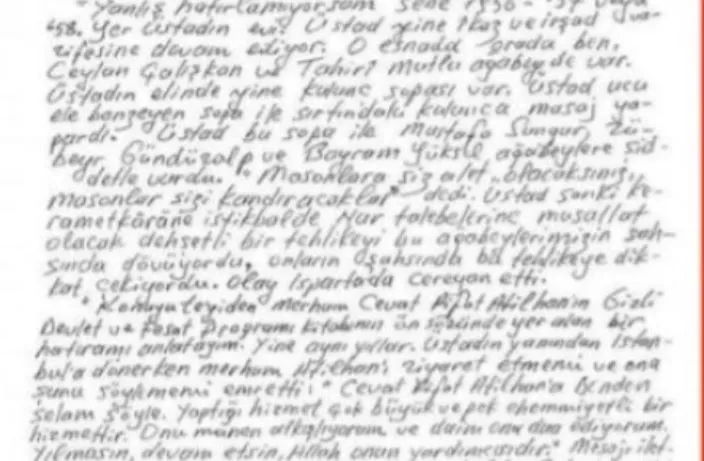 "Yanlış hatırlamıyorsam sene 1956-57 veya
958. Yer Üstadın evi. Üstad yine ikaz ve irşad va-
zifesine devam ediyor. O esnada orada ben,
Ceylan Çalışkan ve Tahiri Mutlu ağabey de var.
Üstadın elinde yine kulunç sopası var. Üstad ucu
ele benzeyen sopa ile sırtındaki kulunca masaj ya-
pardı. Üstad bu sopa ile Mustafa Sungur, Zü-
beyr Gündüzalp ve Bayram Yüksel ağabeylere şid-
detle vurdu. "Masonlara siz alet olacaksınız,
masonlar sizi kandıracaklar" dedi. Üstad sanki ke-
rametkârâne istikbalde Nur talebelerine musallat
olacak dehşetli bir tehlikeyi bu ağabeylerimizin şah-
sında dövüyordu, onların şahsında bu tehlikeye dik-
kat çekiyordu. Olay Ispartada cereyan etti.
" merhum Cevat Rıfat Atilhanın Gizli
Devlet ve Fesat Programı kitabının ön sözünde yer alan bir
hatıramı anlatayım. Yine aynı yıllar. Üstadın yanından İstan-
bul'a dönerken merhum Atilhan'ı ziyaret etmemi ve ona
şunu söylememi emretti: "Cevat Rıfat Atilhan'a Benden
selam söyle. Yaptığı hizmet çok büyük ve pek ehemmiyetli bir
hizmettir. Onu manen alkışlıyorum ve daim ona dua ediyorum.
Yılmasın, devam etsin, Allah onun yardımcısıdır." Mesajı ilet-